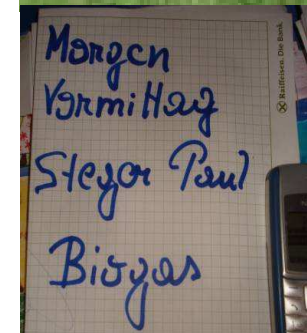 Morgen
Vormittag
Steger Paul
Biogas
Raiffeisen. Die Bank.